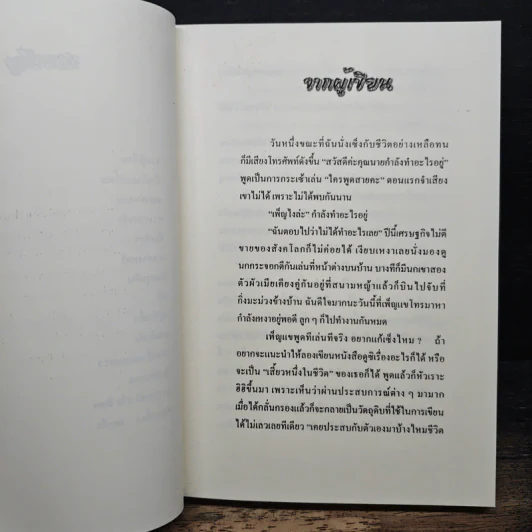 จากผู้เขียน
วันหนึ่งขณะที่ฉันนั่งเซ็งกับชีวิตอย่างเหลือทน
ก็มีเสียงโทรศัพท์ดังขึ้น “สวัสดีค่ะคุณนายกำลังทำอะไรอยู่”
พูดเป็นการกระเซ้าเล่น “ใครพูดสายคะ” ตอนแรกจำเสียง
เขาไม่ได้ เพราะไม่ได้พบกันนาน
“เพ็ญไงล่ะ” กำลังทำอะไรอยู่
“ฉันตอบไปว่าไม่ได้ทำอะไรเลย” ปีนี้เศรษฐกิจไม่ดี
ขายของสังคโลกก็ไม่ค่อยได้ เงียบเหงาเลยนั่งมองดู
นกกระจอกตีกันเล่นที่หน้าต่างบนบ้าน บางทีก็มีนกเขาสอง
ตัวผัวเมียเคียงคู่กันอยู่ที่สนามหญ้าแล้วก็บินไปจับที่
กิ่งมะม่วงข้างบ้าน ฉันดีใจมากนะวันนี้ที่เพ็ญแขโทรมาหา
กำลังเหงาอยู่พอดี ลูก ๆ ก็ไปทำงานกันหมด
เพ็ญแขพูดทีเล่นทีจริง อยากแก้เซ็งไหม ? ถ้า
อยากจะแนะนำให้ลองเขียนหนังสือดูซิเรื่องอะไรก็ได้ หรือ
จะเป็น “เสี้ยวหนึ่งในชีวิต” ของเธอก็ได้ พูดแล้วก็หัวเราะ
ฮิฮิขึ้นมา เพราะเห็นว่าผ่านประสบการณ์ต่าง ๆ มามาก
เมื่อได้กลั่นกรองแล้วก็จะกลายเป็นวัตถุดิบที่ใช้ในการเขียน
ได้ไม่เลวเลยทีเดียว “เคยประสบกับตัวเองมาบ้างไหมชีวิต